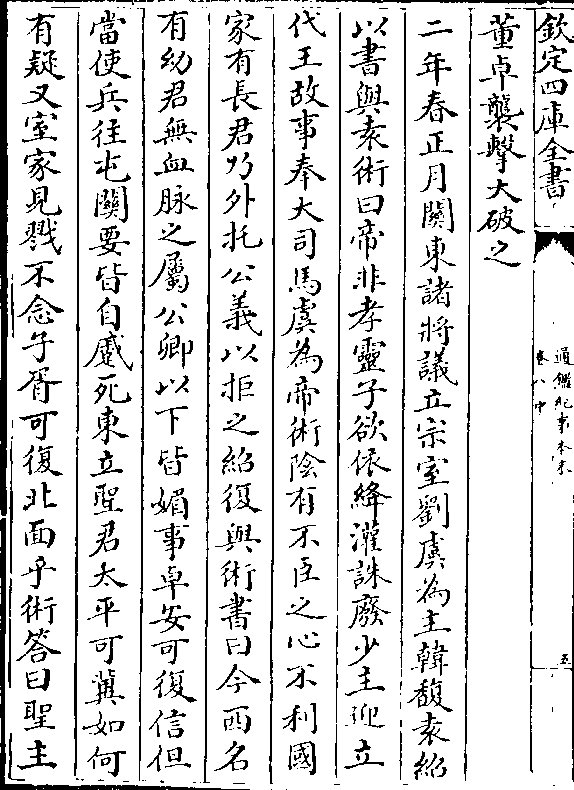 欽定四庫全書
通鑑紀事本末
卷八中
五
董卓襲擊大破之
二年春正月關東諸將議立宗室劉虞為主韓馥袁紹
以書與袁術曰帝非孝靈子欲依絳灌誅廢少主迎立
代王故事奉大司馬虞為帝術陰有不臣之心不利國
家有長君乃外托公義以拒之紹復與術書曰今西名
有幼君無血脉之屬公卿以下皆媚事卓安可復信但
當使兵往屯關要皆自蹙死東立聖君太平可冀如何
有疑又室家見戮不念子胥可復北面乎術答曰聖主